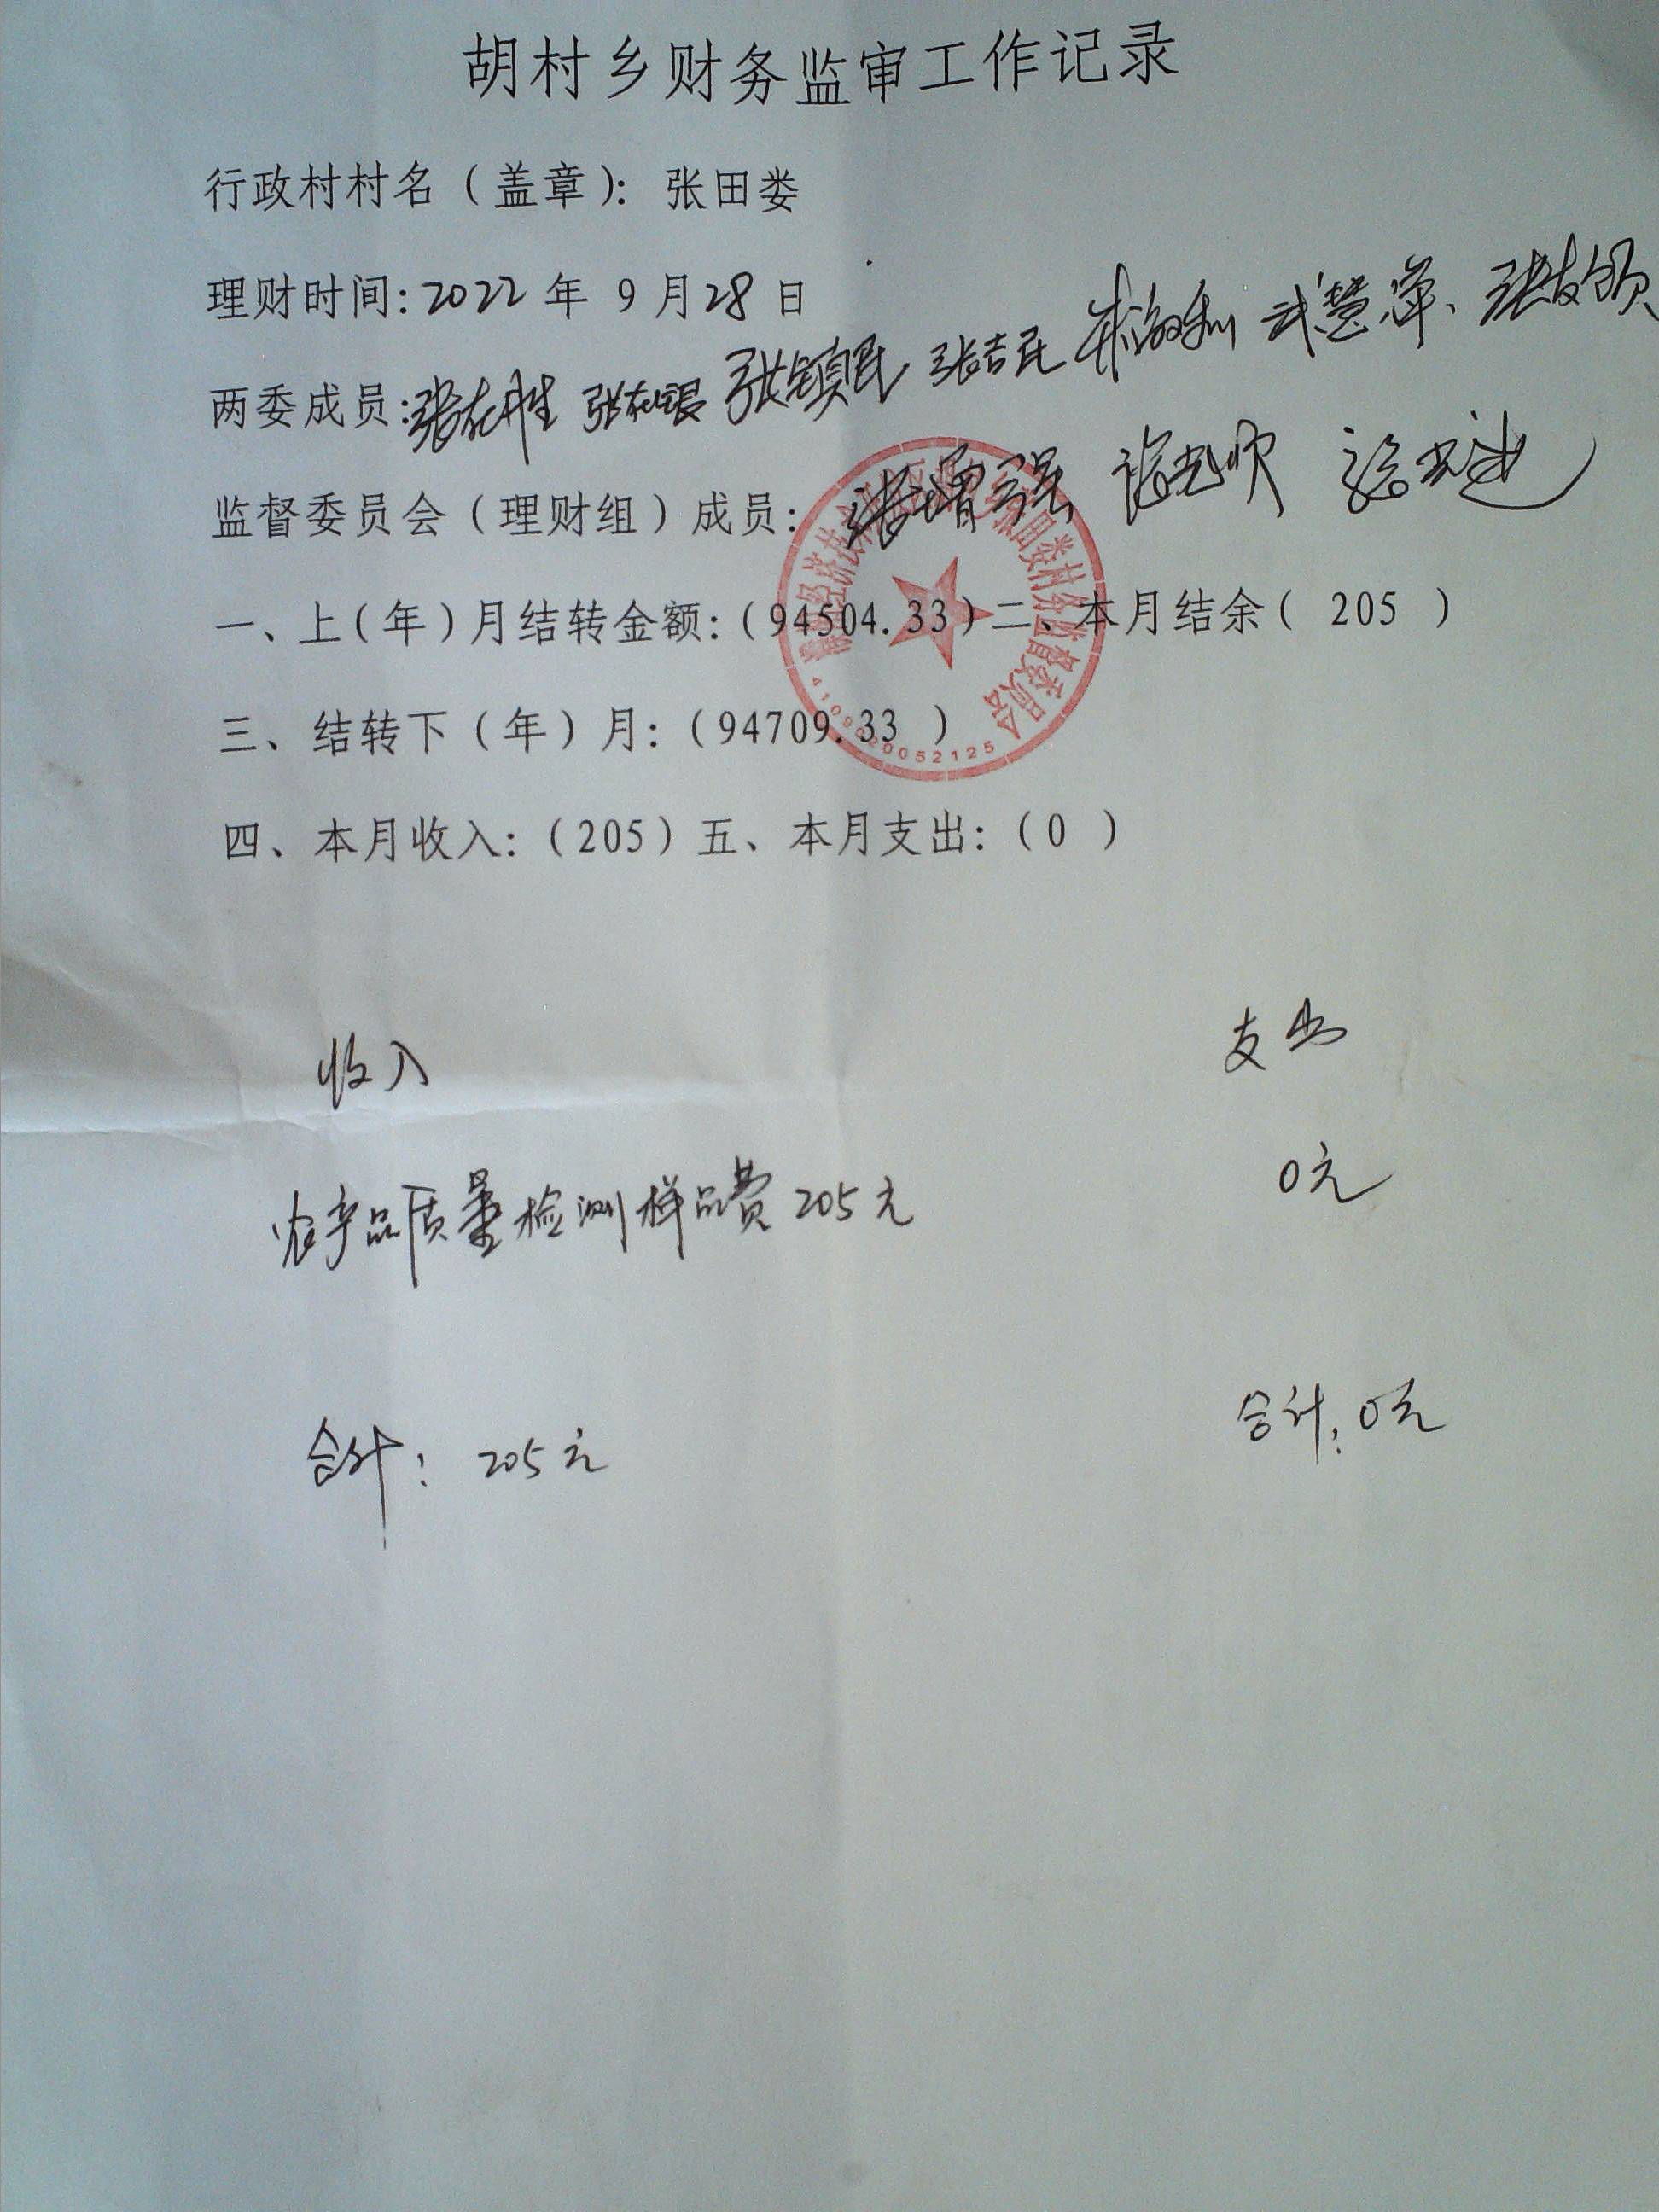 胡村乡财务监审工作记录
行政村村名（盖章）：张田娄
理财时间：2022年 9月28日
两委成员：张在胜 张在银 张镇民 张吉民 武慧萍、张
监督委员会（理财组）成员：张增强
一、上（年）月结转金额：（94504.33）二、本月结余（ 205 ）
三、结转下（年）月：（94709.33 ）
四、本月收入：（205）五、本月支出：（0 ）
田娄村务监督委员会
4109020052125
收入 支出
农产品质量检测样品费205元 0元
合计：205元 合计：0元